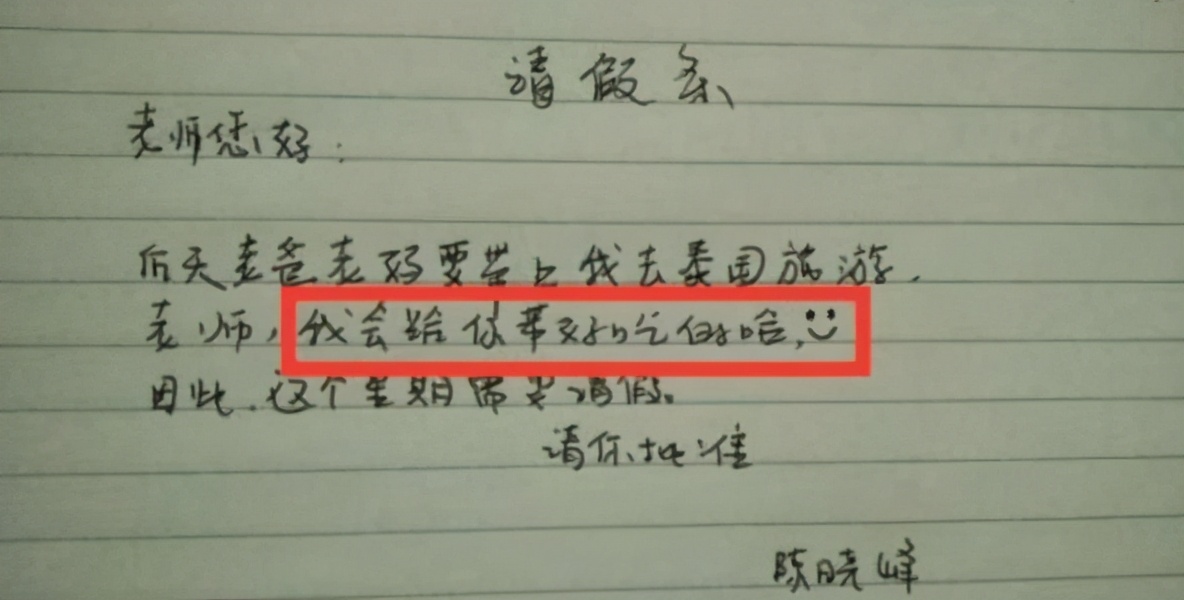 请假条
老师您好:
后天老爸老妈要带上我去泰国旅游.
老师,我会给你带好吃的哈.
因此.这个星期需要请假。
请你批准
陈晓峰